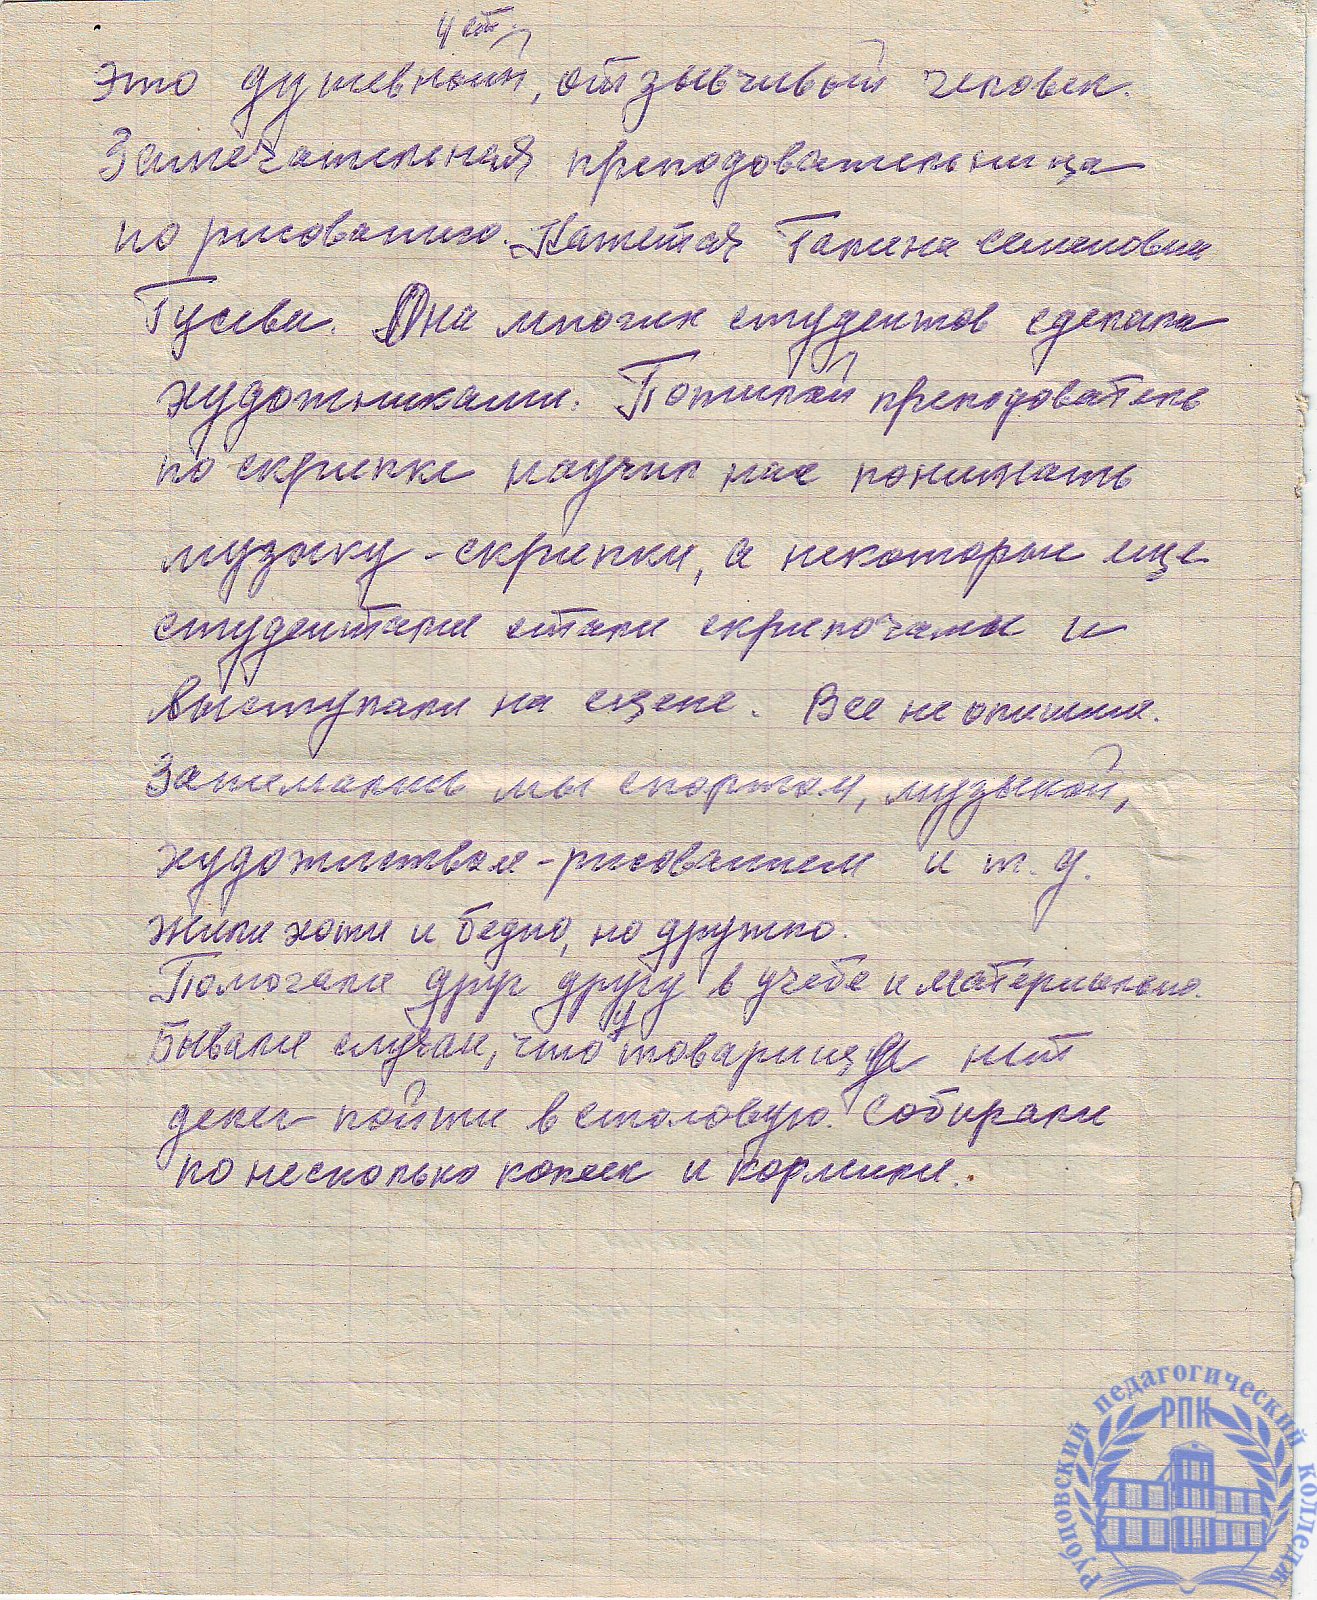 4 ст.
это душевный, отзывчивый человек.
Замечательная преподовательница
по рисованию. Галина Семеновна
Гусева. Она многих студентов сделала
художниками. Пожилой преподователь
по скрипке научил нас понимать
музыку - скрипки, а некоторые еще
студентами стали скрипочами и
выступали на сцене. Все не опишеш.
Занимались мы спортом, музыкой,
художеством - рисованием и т. д.
Жили хоти и бедно, но дружно.
Помогали друг другу в учебе и материально.
Бывали случаи, что у товарища нет
денег пойти в столовую. Собирали
по несколько копеек и кормили.
Рубцовский педагогический колледж
РПК